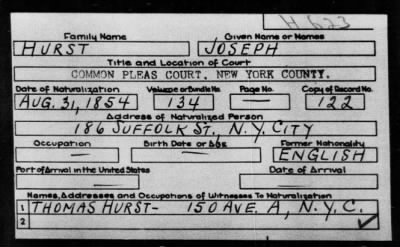 H 623
Family Name Given Name or Names
HURST JOSEPH
Title and Location of Court
COMMON PLEAS COURT, NEW YORK COUNTY.
Date of Naturalization Volume or Bundle No. Page No. Copy of Record No.
AUG. 31, 1854 134 — 122
Address of Naturalized Person
186 SUFFOLK ST., N.Y. CITY
Occupation Birth Date or Age Former Nationality
— — ENGLISH
Port of Arrival in the United States Date of Arrival
— —
Names, Addresses and Occupations of Witnesses To Naturalization
1 THOMAS HURST- 150 AVE. A, N.Y.C.
2 ✓